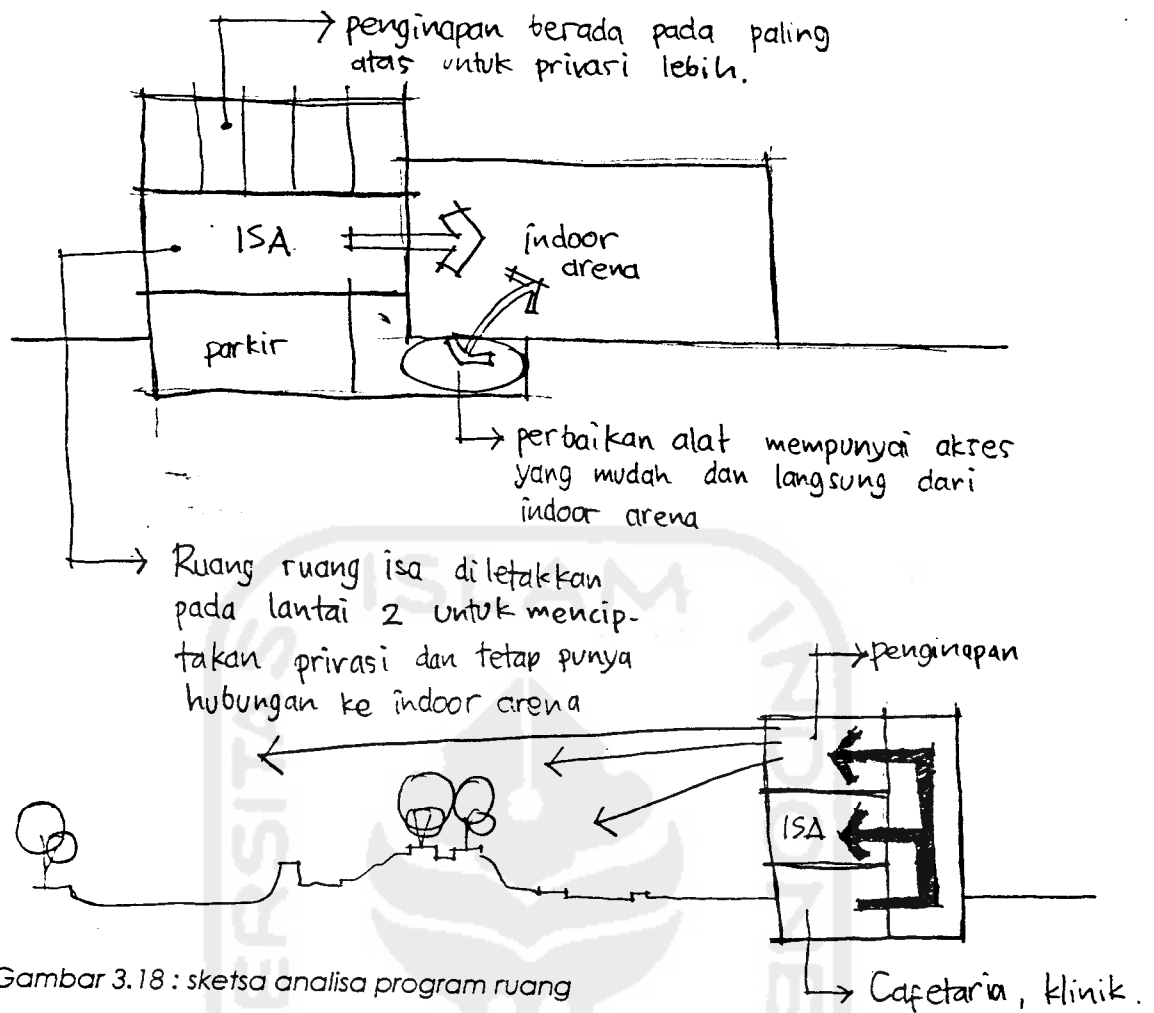 penginapan berada pada paling
atas untuk privasi lebih.
ISA
indoor
arena
parkir
perbaikan alat mempunyai akses
yang mudah dan langsung dari
indoor arena
Ruang ruang isa diletakkan
pada lantai 2 untuk mencip-
takan privasi dan tetap punya
hubungan ke indoor arena
penginapan
ISA
Cafetaria, klinik.
Gambar 3.18 : sketsa analisa program ruang
ISLAM
INDONE
ERSITAS